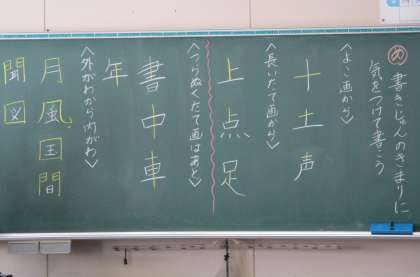 め 書きじゅんのきまりに
気をつけて書こう
＜よこ画から＞
十土声
＜長いたて画から＞
上点足
＜つらぬくたて画はあと＞
書中車
年
＜外がわから内がわ＞
月風国間
聞図